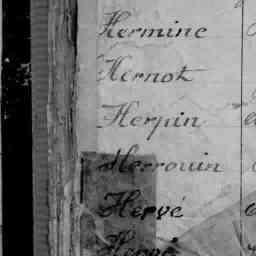 Hermine
Hernot
Herpin
Herrouin
Hervé
Hervé